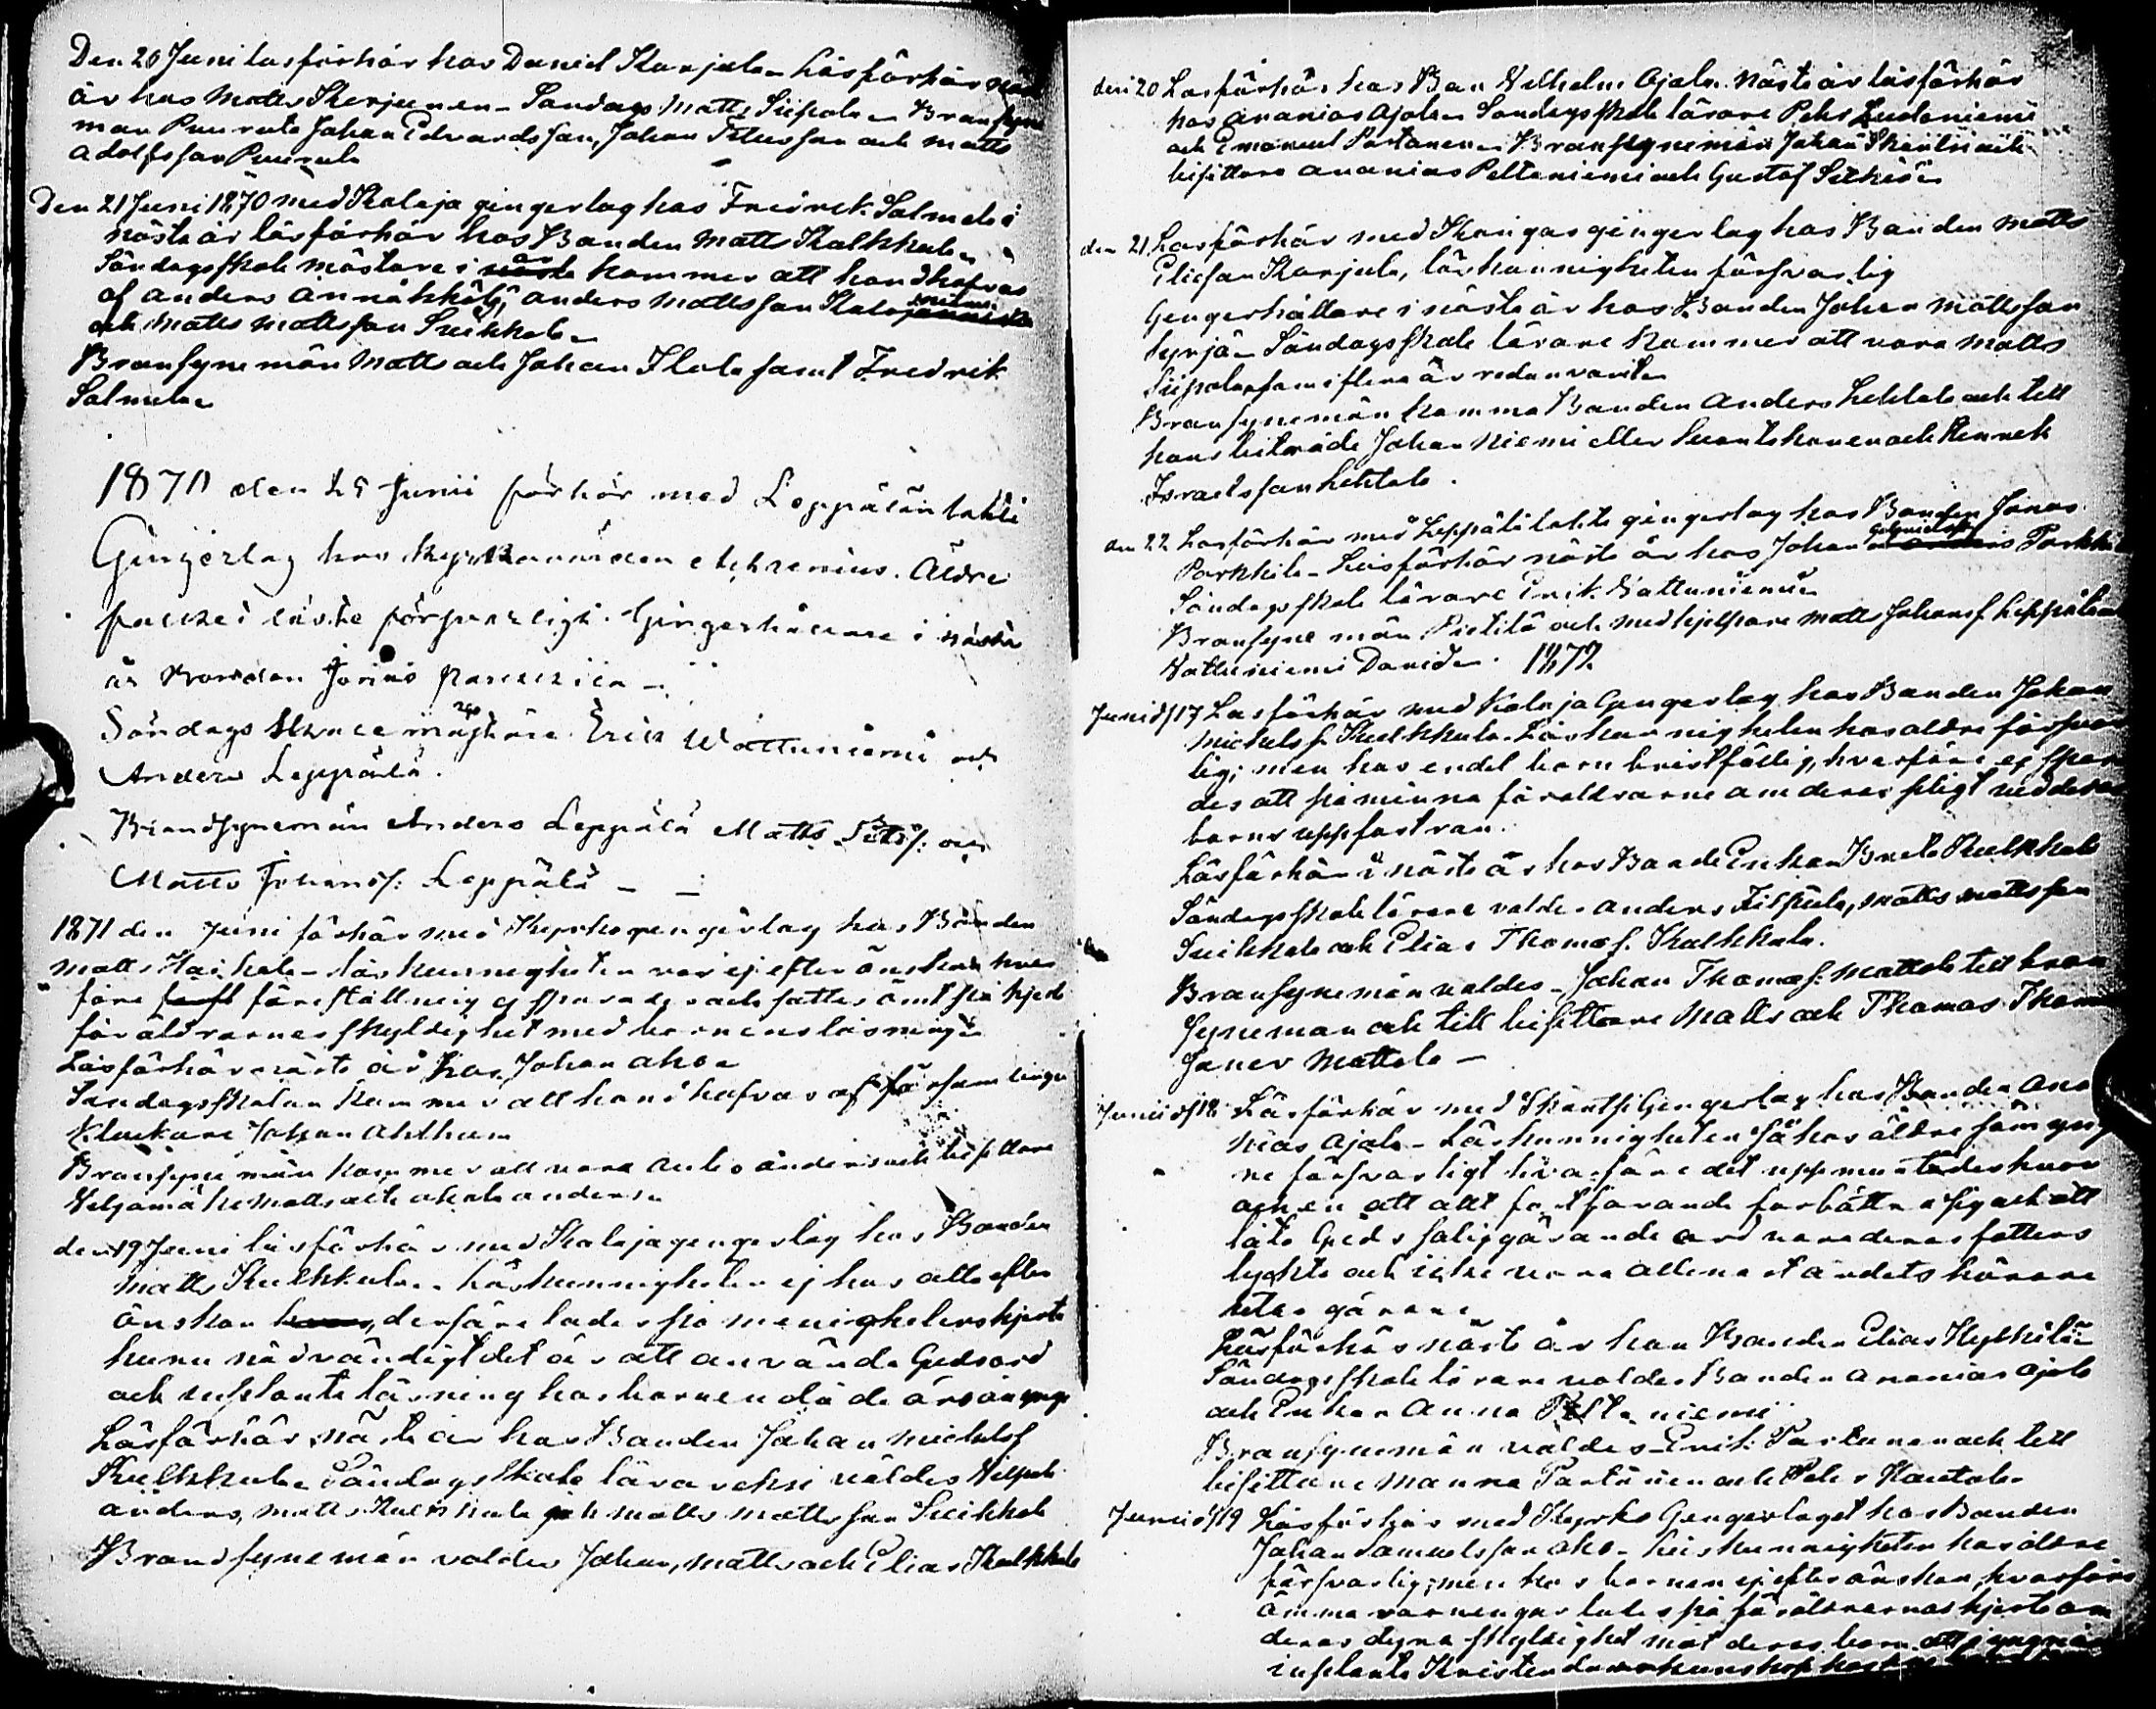 Den 20 Juni läsförhör hos Daniel Karjala Läsförhör näst
år hos Matts Karjunen Söndags Matts Siipola Bransyne
man Puurula Johan Edvardsson, Johan Titusson och Matts
Adolfsson Puurula
Den 21 Juni 1870 med Kalaja gingerlag hos Fredrik Salmela i
nästa år läsförhör hos Bonden Matts Kulkkula
Söndagsskole mästare i år kommer att handhafvas
af Anders Annäkkälä, Anders Mattsson Kalajaniemi
och Matts Mattsson Suikkala
Bransynemän Matts och Johan Ilola samt Fredrik
Salmela
1870 den 25 Junii förhör med Leppälänlahti
Gingerlag hos Kyrkoherden Hehrenius. Äldre
folket läste försvarligt. Gingerhållare i nästa
år Bonden Jonas Parkkila
Söndags Skolemästare Erik Wattuniemi och
Anders Leppälä.
Brandsynemän Anders Leppälä Matts Petrs: och
Matts Johans: Leppälä
1871 den Juni förhör med Kyrko gengerlag hos Bonden
Matts Haikola läskunnigheten var ej efter önskan hvar
före föreställning ej sparades och sattes ömt på hjert
föräldrarnes skyldighet med barnens läsning
Läsförhör nästa år hos Johan Aho
Söndagsskolan kommer att handhafvas af församlings
Klockare Johan Ahlholm
Bransyne män kommer att vara Anders och bisittare
Veljamäki Matts och Ahola Anders
den 19 Juni läsförhör med Kalaja gengerlag hos Bonden
Matts Kulkkula. Läskunnigheten ej hos alla efter
önskan derföre lades på menighetens hjerta
huru nödvändigt det är att använda Guds ord
och inplanta läsning hos barnen då de äro unga
Läsförhör nästa år hos Bonden Johan Michelsf
Kulkkula Söndags Skole lärare valdes Vilpola
Anders, Matts Kulkkula och Matts Mattsson Suikkala
Brandsynemän valdes Johan, Matts och Elias Kulkkula
den 20 Läsförhör hos Bon Vilhelm Ojala. Nästa år läsförhör
hos Ananias Ojala Söndagsskole lärare Pehr Luodeniemi
och Emanuel Partanen Bransynemän Johan Skantsi och
bisittare Ananias Peltoniemi och Gustaf Sirkiä
den 21 Läsförhör med Kangas gengerlag hos Bonden Matts
Eliasson Karjula, läskunnigheten försvarlig
Gengerhållare i nästa år hos Bonden Johan Mattsson
Syrjä Söndagsskole lärare kommer att vara Matts
Siipola som i flera år redan varit
Bransynemän komma Bonden Anders Lehtola och till
hans biträde Johan Niemi eller Suontakanen och Henrik
Israelsson Lehtola.
den 22 Läsförhör med Leppälälahti gengerlag hos Bonden Jonas
Parkkila Läsförhör nästa år hos Johan Gabrielss Parkki
Söndagsskole lärare Erik Vattuniemi
Bransyne män Pietilä och medhjelpare Matts Johansf Leppälä
Vattuniemi Daniel. 1872
Juni d/17 Läsförhör med Kalaja Gengerlag hos Bonden Johan
Michels f. Kulkkula. Läskunnigheten hos äldre försvar
lig; men hos endel barn bristfällig, hvarföre ej spar
des att påminna föräldrarne om deras pligt vid deras
barns uppfostran.
Läsförhör i nästa år hos Bonde Enkan Brita Kulkkula
Söndagsskole lärare valdes Anders Filppula, Matts Mattsson
Suikkala och Elias Thomas f. Kulkkula.
Bransynemän valdes Johan Thomasf: Mattola till bran
syneman och till bisittare Matts och Thomas Thoma
söner Mattola
Junii d/18 Läsförhör med Skantsi Gengerlag hos Bonden Ana
nias Ojala Läskunnigheten så hos äldre som yng
re försvarligt hvarföre det uppmuntrades hvar
och en att allt fortfarande förbättra sig och att
låta Guds saliggörande ord vara deras fötters
lykta och icke vara allenast ordets hörare
utan görare
Läsförhör nästa år hos Bonden Elias Kyhkilä
Söndagsskole lärare valdes Bonden Ananias Ojala
och Enkan Anna Peltoniemi
Bransynemän valdes Erik Partanen och till
bisittare Manne Partanen och Pehr Kautola
Junii d/19 Läsförhör med Kyrko Gengerlaget hos Bonden
Johan Samuelsson Aho. Läskunnigheten hos äldre
försvarlig; men hos barnen ej efter önskan, hvarföre
ömma varningar lades på föräldrarnas hjerta om
deras dyra skyldighet mot deras barn att i ungdom
inplanta Kristendomskunskap hos